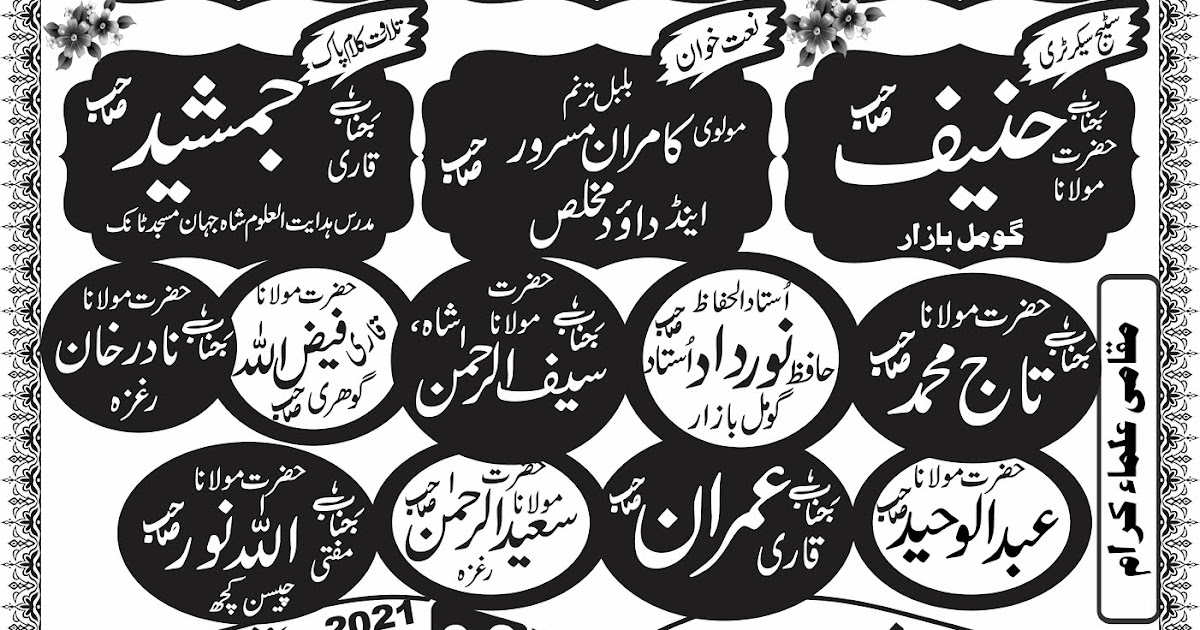 سٹیج سیکرٹری
جناب
حضرت
مولانا
حنیف
صاحب
گومل بازار
نعت خوان
بلبل ترنم
مولوی کامران مسرور
صاحب
اینڈ داؤد مخلص
تلاوت کلام پاک
جناب
قاری
جمشید
صاحب
مدرس ہدایت العلوم شاہ جہان مسجد ٹانک
مقامی علماء کرام
حضرت مولانا
جناب
تاج محمد
صاحب
اُستاد الحفاظ
صاحب
حافظ نورداد اُستاد
گومل بازار
حضرت
مولانا
جناب
شاہ،
سیف الرحمٰن
حضرت مولانا
قاری فیض اللہ
گوھری صاحب
حضرت مولانا
جناب
نادر خان
رغزہ
حضرت مولانا
عبدالوحید
صاحب
جناب
قاری
عمران
صاحب
حضرت
مولانا
سعیدالرحمٰن
صاحب
رغزہ
حضرت مولانا
جناب
مفتی
اللہ نور
صاحب
چیسن کچھ
2021